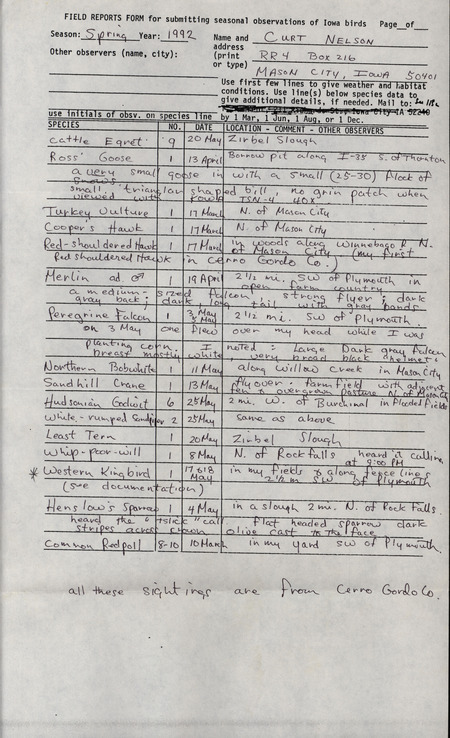 FIELD REPORTS FORM for submitting seasonal observations of Iowa birds Page__of__
Season: Spring Year: 1992 Name and CURT NELSON
address RR 4 Box 216
Other observers (name, city): (print
or type) MASON CITY, IOWA 50401
Use first few lines to give weather and habitat
conditions. Use line(s) below species data to
give additional details, if needed. Mail to:
use initials of obsv. on species line by 1 Mar, 1 Jun, 1 Aug, or 1 Dec.
SPECIES NO. DATE LOCATION - COMMENT - OTHER OBSERVERS
Cattle Egret 9 20 May Zirbel Slough
Ross' Goose 1 13 April Borrow pit along I-35 S. of Thornton
a very small goose in with a small (25-30) flock of
Snows
small, triangular shaped bill, no grin patch when
viewed with Kowa TSN-4 40X
Turkey Vulture 1 17 March N. of Mason City
Cooper's Hawk 1 17 March N. of Mason City
Red-shouldered Hawk 1 17 March in woods along Winnebago R. N.
of Mason City (my first
Red shouldered Hawk in Cerro Gordo Co.)
Merlin ad. ♂ 1 19 April 2 1/2 mi. SW of Plymouth in
open farm country
a medium-sized falcon, strong flyer; dark
gray back; dark long tail with gray bands
Peregrine Falcon 1 3 May 2 1/2 mi. SW of Plymouth.
on 3 May one flew over my head while I was
planting corn. I noted: Large Dark gray falcon
breast mostly white very broad black "helmet"
Northern Bobwhite 1 11 May along Willow creek in Mason City
Sandhill Crane 1 13 May fly over. farm field with adjacent
fen & overgrown pasture N. of Mason City
Hudsonian Godwit 6 25 May 2 mi. W. of Burchinal in flooded fields
White-rumped Sandpiper 2 25 May same as above
Least Tern 1 20 May Zirbel Slough
Whip-poor-will 1 8 May N. of Rock Falls heard a calling
at 9:00 PM
* Western Kingbird 1 17 & 18 May in my fields & along fence lines
2 1/2 m SW of Plymouth
(see documentation)
Henslow's Sparrow 1 4 May in a slough 2 mi. N. of Rock Falls.
heard the "tslick" call flat headed sparrow dark
stripes across crown olive cast to the face
Common Redpoll 8-10 10 March in my yard SW of Plymouth.
all these sightings are from Cerro Gordo Co.